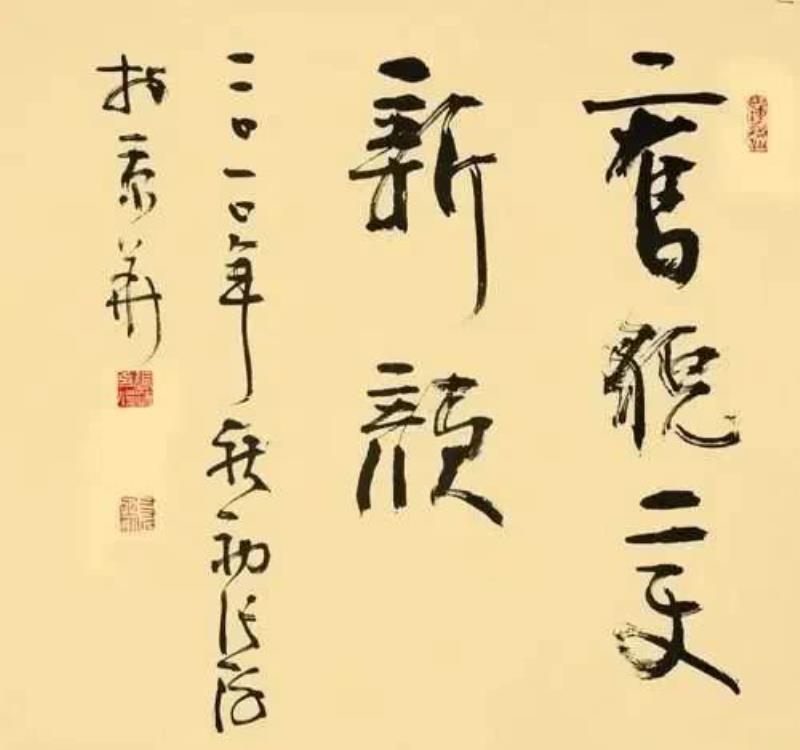 舊貌變
新顏
二〇一〇年秋初
於京華